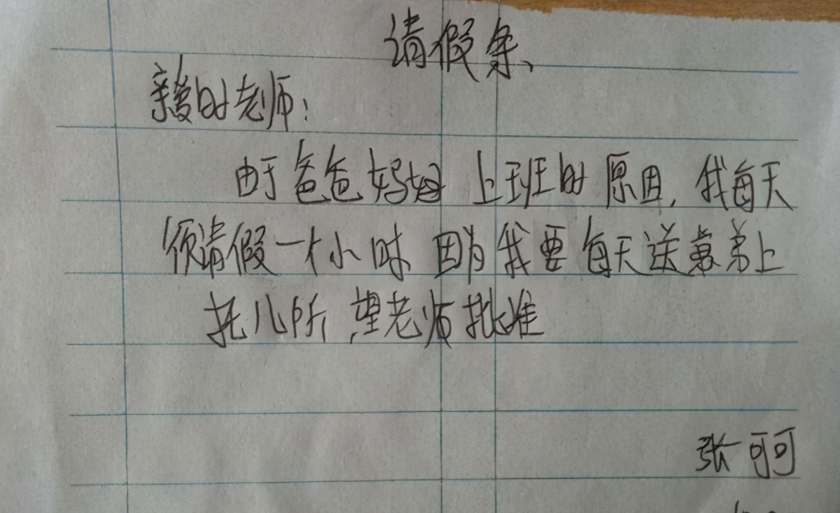 请假条
亲爱的老师：
由于爸爸妈妈上班的原因，我每天
须请假一个小时 因为我要每天送弟弟上
托儿所，望老师批准
张可可